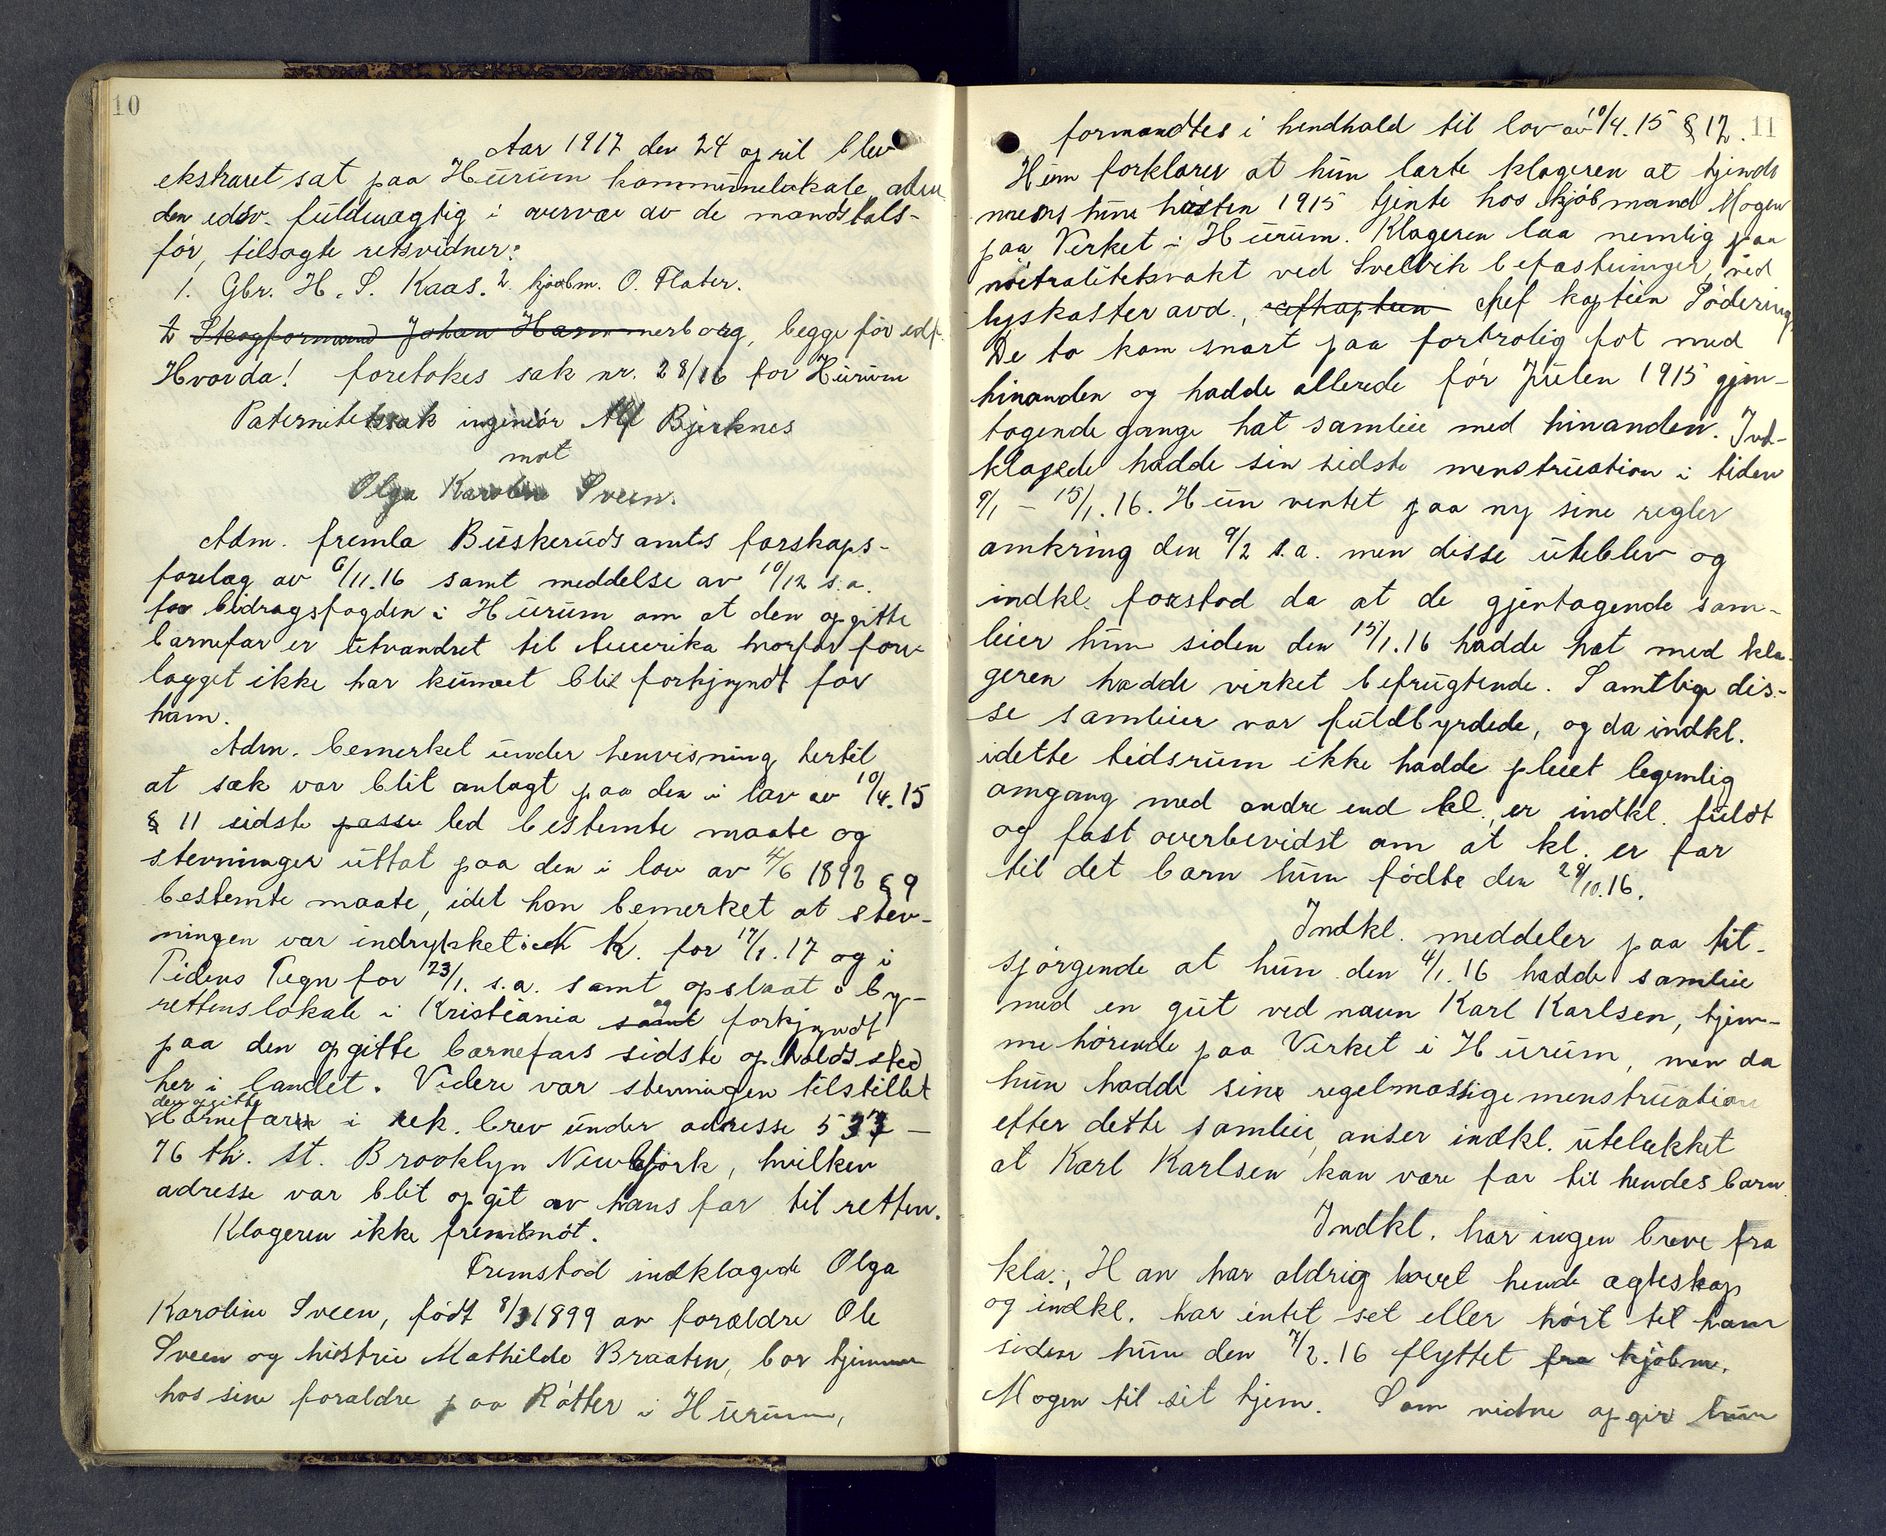 10
Aar 1917 den 24 april blev
ekstraret sat paa Hurum kommunelokale adm
den edsv. fuldmægtig i overvær av de mandstals-
før, tilsagte retsvidner:
1. Gbr. H. S. Kaas. 2. kjøbm. O. Flater.
2 Skogformand Johan Hammerborg, begge før edf.
Hvorda! foretokes sak nr. 28/16 for Hurum
Paternitetssak ingeniør Alf Bjerknes
mot
Olga Karoline Sveen.
Adm. fremla Buskeruds amts farskaps-
forelæg av 6/11.16 samt meddelse av 10/12 s.a.
fra bidragsfogden i Hurum om at den opgitte
barnefar er utvandret til Amerika hvorfor fore-
lægget ikke har kunnet blit forkjyndt for
ham.
Adm. bemerket under henvisning hertil
at sak var blit anlagt paa den i lov av 10/4.15
§ 11 sidste passu led bestemte maate og
stevninger uttat paa den i lov av 4/6 1892 § 9
bestemte maate, idet han bemerket at stev-
ningen var indrykket i N. K. for 17/1.17 og i
Tidens Tegn for 23/1. s.a. samt opslaat i by-
rettens lokale i Kristiania samt og forkjyndt
paa den opgitte barnefars sidste opholdssted
her i landet. Videre var stevningen tilstillet
den opgitte
barnefaren i rek. brev under adresse 537 –
76 th. st. Brooklyn New York, hvilken
adresse var blit opgit av hans far til retten.
Klageren ikke fremmøt.
Fremstod indklagede Olga
Karoline Sveen, født 8/3 1899 av forældre Ole
Sveen og hustru Mathilde Braaten, bor hjemme
hos sine forældre paa Røtter i Hurum,
11
formandtes i hendhold til lov av 10/4.15 § 12.
Hun forklarer at hun lærte klageren at kjende
mens hun høsten 1915 tjente hos kjøbmand Mogen
paa Verket i Hurum. Klageren laa nemlig paa
nøitralitetsvakt ved Svelvik befæstninger, ved
lyskasteravd., chef kaptein Sødering.
De to kom snart paa fortrolig fot med
hinanden og hadde allerede før Julen 1915 gjen-
tagende gange hat samleie med hinanden. Ind-
klagede hadde sin sidste menstruation i tiden
9/1 – 15/1.16. Hun ventet paa ny sine regler
omkring den 9/2 s.a. men disse uteblev og
indkl. forstod da at de gjentagende sam-
leier hun siden den 15/1.16 hadde hat med kla-
geren hadde virket befrugtende. Samtlige dis-
se samleier var fuldbyrdede, og da indkl.
idette tidsrum ikke hadde pleiet legemlig
omgang med andre end kl., er indkl. fuldt
og fast overbevidst om at kl. er far
til det barn hun fødte den 28/10.16.
Indkl. meddeler paa til-
spørgende at hun den 4/1.16 hadde samleie
med en gut ved navn Karl Karlsen, hjem-
mehørende paa Verket i Hurum, men da
hun hadde sine regelmæssige menstruation
efter dette samleie, anser indkl. utelukket
at Karl Karlsen kan være far til hendes barn.
Indkl. har ingen breve fra
kla., Han har aldrig lovet hende ægteskap
og indkl. har intet set eller hørt til ham
siden hun den 7/2.16 flyttet fra kjøbm.
Mogen til sit hjem. Som vidne opgir hun